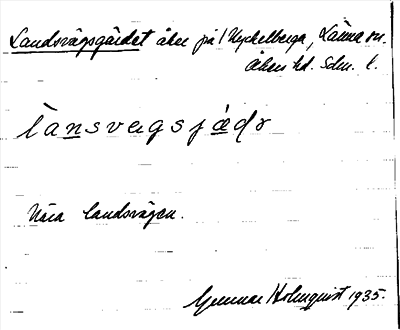 Landsvägsgärdet åker på 1 Nyckelberga, Länna sn.
Åkers hd. Sdm. l.
lansvegsjädr
Nära landsvägen.
Gunnar Holmquist 1935.